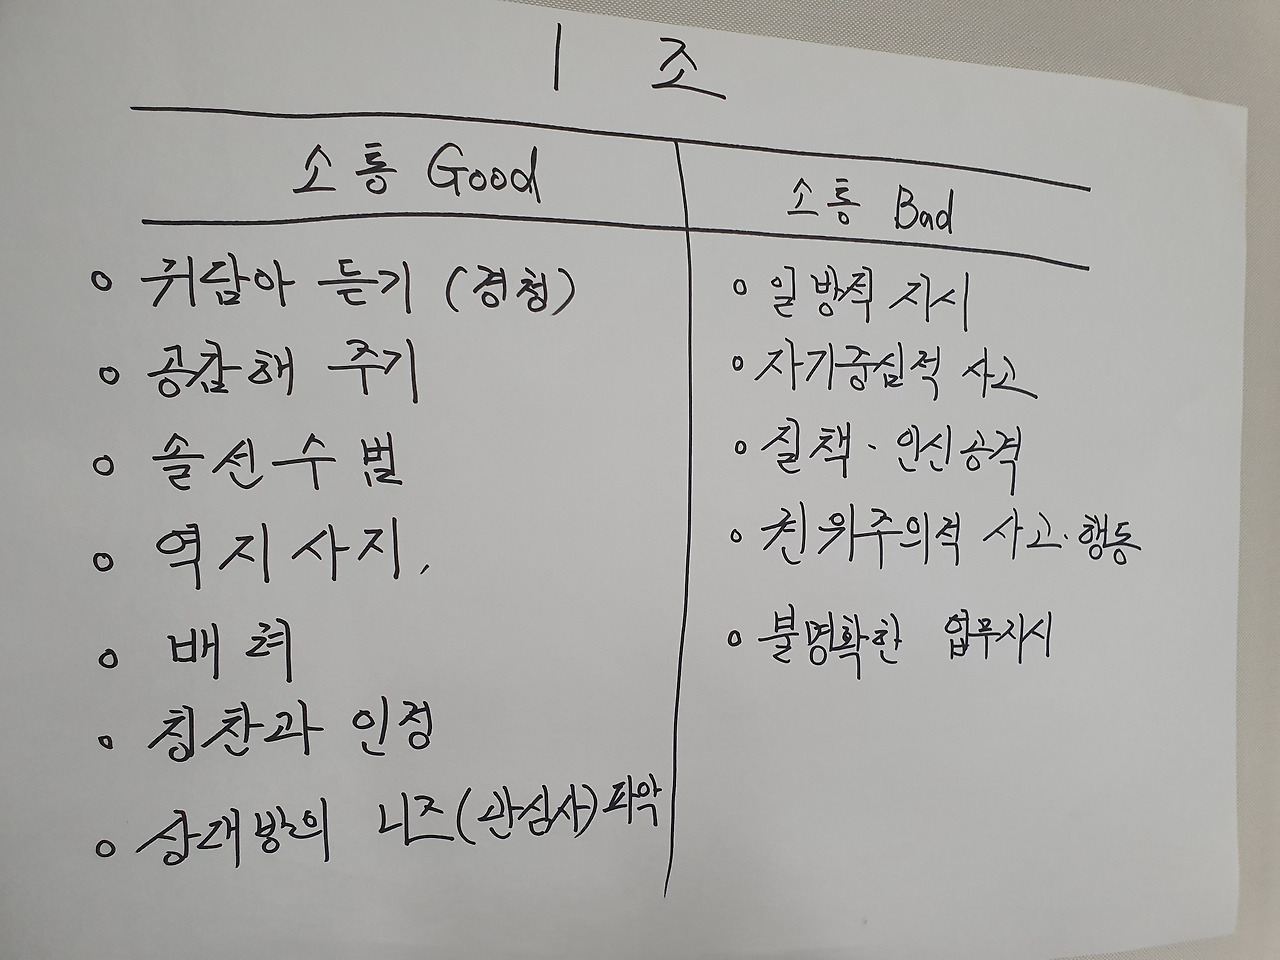 1 조
소통 Good
귀담아 듣기 (경청)
공감해 주기
솔선수범
역지사지,
배려
칭찬과 인정
상대방의 니즈(관심사)파악
소통 Bad
일방적 지시
자기중심적 사고
질책·인신공격
권위주의적 사고·행동
불명확한 업무지시